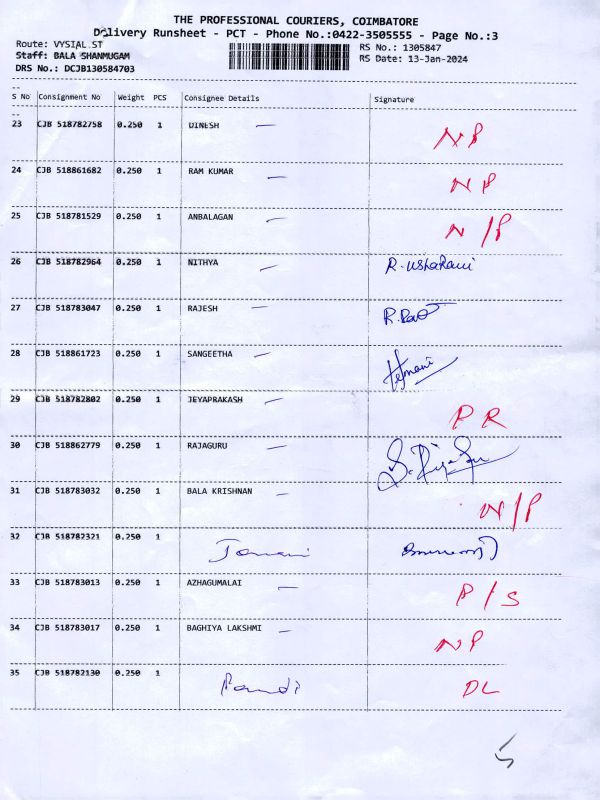 THE PROFESSIONAL COURIERS, COIMBATORE
Delivery Runsheet - PCT - Phone No.:0422-3505555 - Page No.:3
Route: VYSIAL.ST
Staff: BALA SHANMUGAM
DRS No.: DCJB130584703
RS No.: 1305847
RS Date: 13-Jan-2024
S No Consignment No Weight PCS Consignee Details Signature
23 CJB 518782758 0.250 1 DINESH NP
24 CJB 518861682 0.250 1 RAM KUMAR NP
25 CJB 518781529 0.250 1 ANBALAGAN N/P
26 CJB 518782964 0.250 1 NITHYA R. Usharani
27 CJB 518783047 0.250 1 RAJESH
28 CJB 518861723 0.250 1 SANGEETHA
29 CJB 518782802 0.250 1 JEYAPRAKASH PR
30 CJB 518862779 0.250 1 RAJAGURU
31 CJB 518783032 0.250 1 BALA KRISHNAN N/P
32 CJB 518782321 0.250 1
33 CJB 518783013 0.250 1 AZHAGUMALAI P/S
34 CJB 518783017 0.250 1 BAGHIYA LAKSHMI NP
35 CJB 518782130 0.250 1 Pandi DL
5